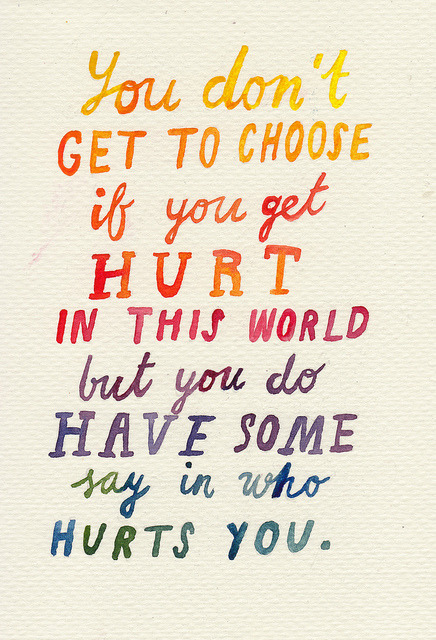 You don't
GET TO CHOOSE
if you get
HURT
IN THIS WORLD
but you do
HAVE SOME
say in who
HURTS YOU.